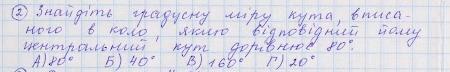 ② Знайдіть градусну міру кута, вписа-
ного в коло, якщо відповідний йому
центральний кут дорівнює 80°.
А) 80° Б) 40° В) 160° Г) 20°